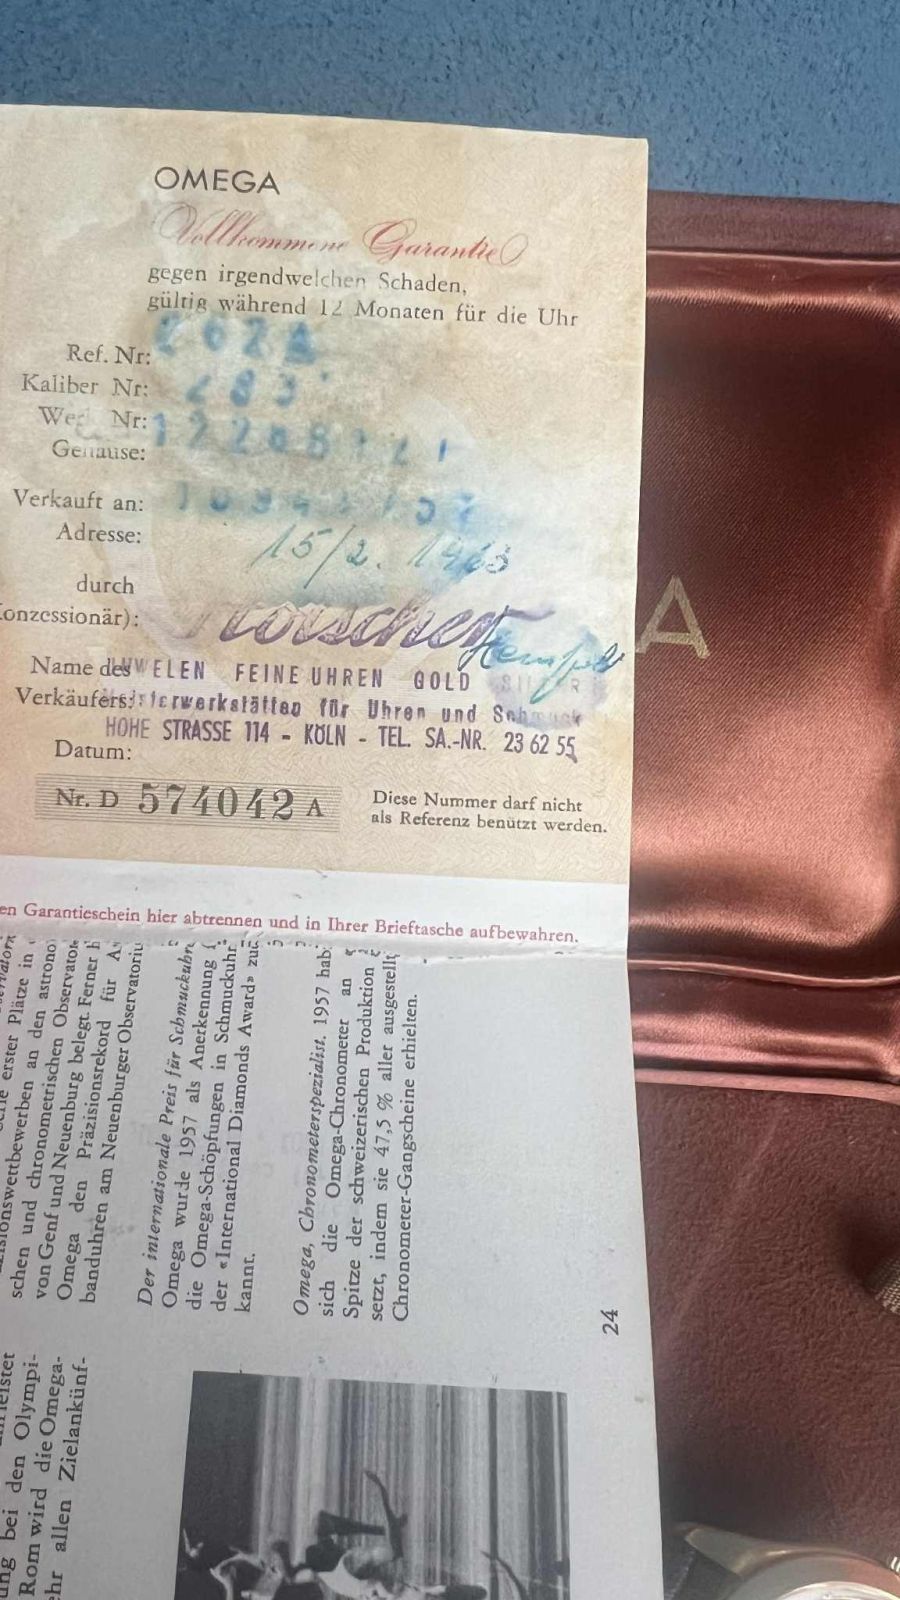 OMEGA
Vollkommene Garantie
gegen irgendwelchen Schaden,
gültig während 12 Monaten für die Uhr
Ref. Nr:
Kaliber Nr: 283
Nr:
Gehäuse:
Verkauft an:
Adresse: 15/2. 1963
durch
Konzessionär):
Name des JUWELEN FEINE UHREN GOLD SILBER
Verkäufers: Meisterwerkstätten für Uhren und Schmuck
HOHE STRASSE 114 - KÖLN - TEL. SA.-NR. 23 62 55
Datum:
Nr. D 574042 A
Diese Nummer darf nicht
als Referenz benützt werden.
en Garantieschein hier abtrennen und in Ihrer Brieftasche aufbewahren.
erster Plätze in
zisionswettbewerben an den astrono
schen und chronometrischen Observator
von Genf und Neuenburg belegt. Ferner h
Omega den Präzisionsrekord für A
banduhren am Neuenburger Observatoriu
Der internationale Preis für Schmuckuhr
Omega wurde 1957 als Anerkennung f
die Omega-Schöpfungen in Schmuckuhr
der «International Diamonds Award» zu
kannt.
Omega, Chronometerspezialist. 1957 hab
sich die Omega-Chronometer an
Spitze der schweizerischen Produktion
setzt, indem sie 47,5 % aller ausgestellt
Chronometer-Gangscheine erhielten.
24
ung bei den Olympi-
Rom wird die Omega-
ehr allen Zielankünf-
A